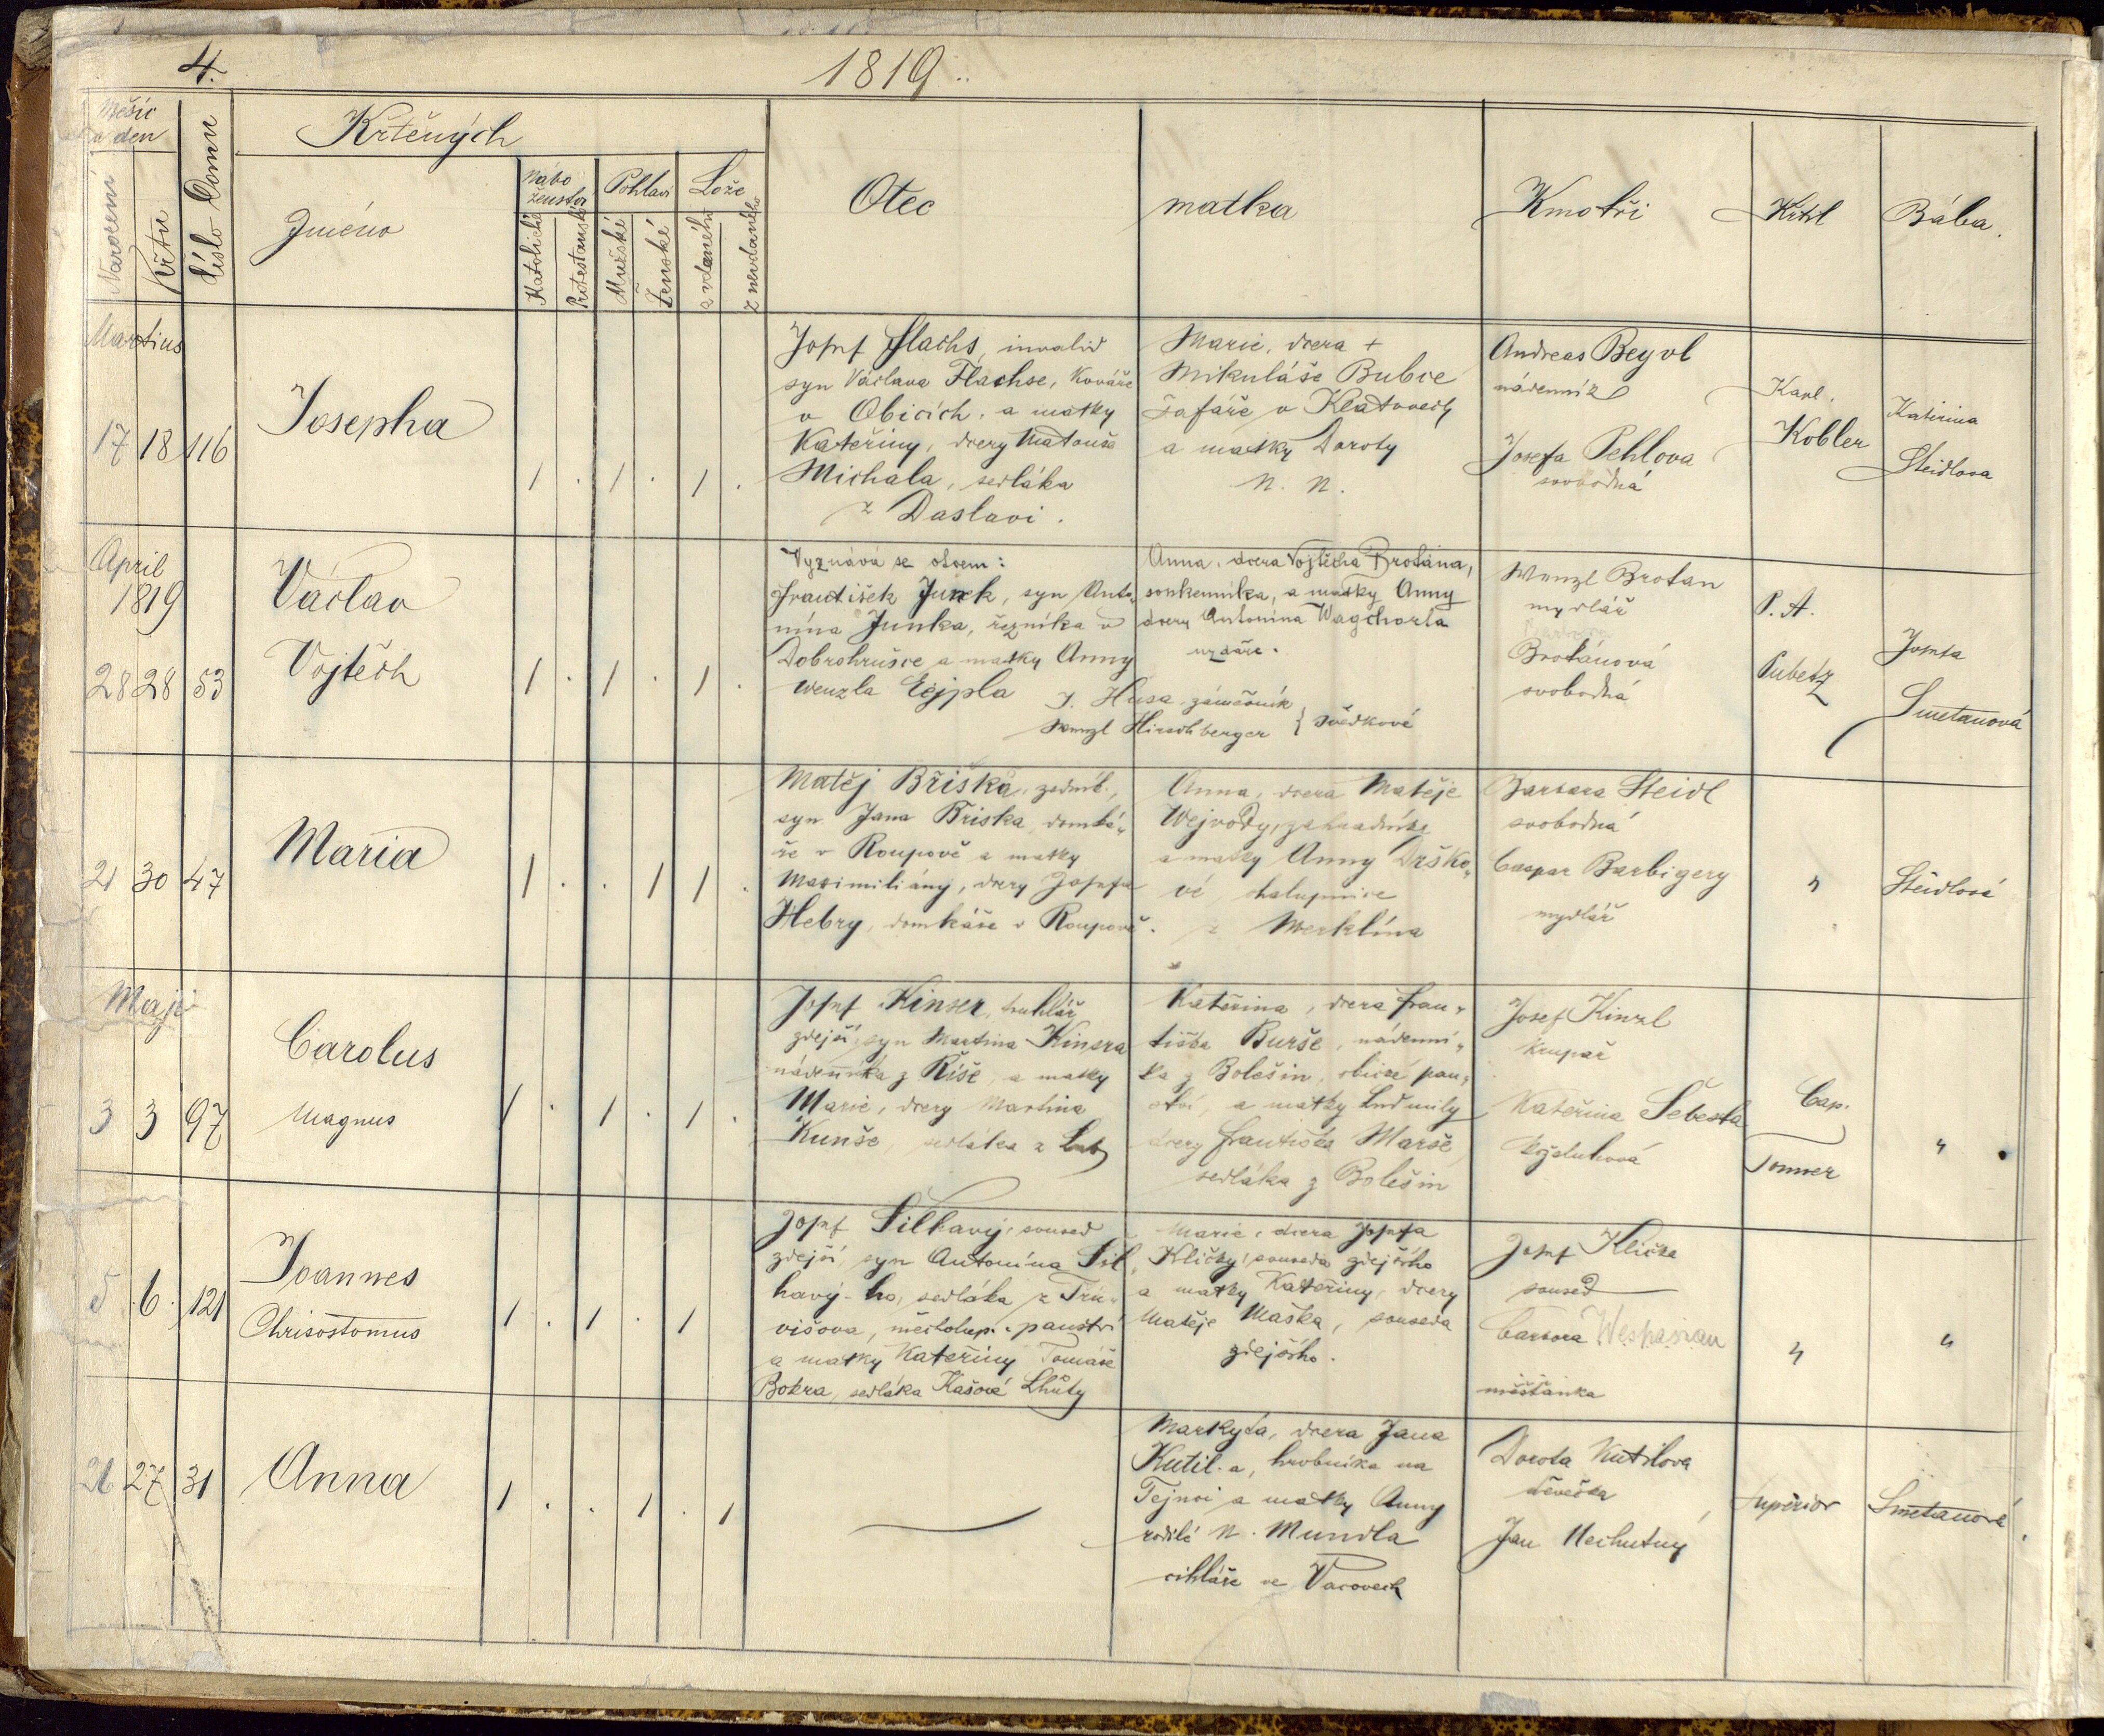 4.
1819.
Měsíc
a den
Narození
Křtu
Číslo Domu
Křtěných
Jméno
Nábo
ženství
Katolické
Protestanské
Pohlaví
Mužské
Ženské
Lože
z vdaného
z nevdaného
Otec
matka
Kmotři
Křtil
Bába.
Martius
17 18 116
Josepha
1 . 1 . 1 .
Josef Flachs, invalid
syn Václava Flachse, Kováře
v Obicích. a matky
Kateřiny, dcery Matouše
Michala, sedláka
z Daslavi.
Marie, dcera +
Mikuláše Bubce
šafáře v Klatovech
a matky Doroty
N. N.
Andreas Beyvl
nádenník
Josefa Pehlova
svobodná
Kapl.
Kobler
Katirina
Steidlova
April
1819
28 28 53
Václav
Vojtěch
1 . 1 . 1 .
Vyznává se otcem:
František Junek, syn Anto„
nína Junka, řezníka v
Dobrohrušce a matky Anny
Wenzla Eijpla
J. Husa, zámečník
Wenzl Hirschberger } svědkové
Anna, dcera Vojtěcha Brotána,
soukenníka, a matky Anny
dcery Antonína Wagchorta
uzdáře.
Wenzl Brotan
mydlář
Brotánová
svobodná
P. A.
Pubetz
Josefa
Smetanová
21 30 47
Maria
1 . . 1 1 .
Matěj Břiška, zedník,
syn Jana Břiska, domká„
ře v Roupově a matky
Maximiliány, dcery Josefa
Hebry, domkáře v Roupově.
Anna, dcera Matěje
Wejvody, zahradníka
a matky Anny Drško„
vé, chalupnice
z Merklína
Barbara Steidl
svobodná
Caspar Barbigery
mydlář
"
Steidlová
Maji
3 3 97
Carolus
Magnus
1 . 1 . 1 .
Josef Kinser, truhlář
zdejší, syn Martina Kinsra
nádenníka z Říše, a matky
Marie, dcery Martina
Kunše, sedláka z Lub
Kateřina, dcera Fran„
tiška Burše, nádenní„
ka z Bolešin, obické pan„
ství, a matky Ludmily
dcery Františka Marše
sedláka z Bolešin
Josef Kinzl
krupař
Kateřina Šebesta
Cap.
Tonner
"
5 6. 121
Joannes
Chrisostomus
1 . 1 . 1
Josef Silhavý, soused
zdejší, syn Antonína Sil„
havý-ho, sedláka z Trn„
višova, měcholup. panství
a matky Kateřiny Tomáše
Bokra, sedláka Kašové Lhůty
Marie, dcera Josefa
Kličky, souseda zdejšího
a matky Kateřiny, dcery
Matěje Maška, souseda
zdejšího.
Josef Klička
soused
Barbora Wespasian
měštanka
"
"
26 27 31
Anna
1 . . 1 . 1
Markyta, dcera Jana
Kutil-a, hrobníka na
Tejnci a matky Anny
rodilé N. Mundla
cihláře ve Vacovech
Dorota Kutilova
děvečka
Jan Nechutný
Superior
Smetanová